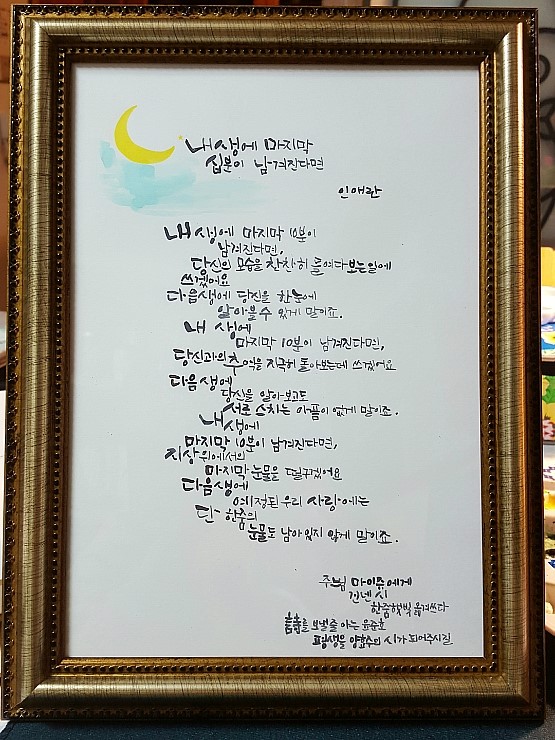 내생에 마지막
십분이 남겨진다면
인애란
내 생에 마지막 10분이
남겨진다면,
당신의 모습을 찬찬히 들여다보는일에
쓰겠어요
다음생에 당신을 한눈에
알아볼수 있게 말이죠.
내 생에
마지막 10분이 남겨진다면,
당신과의 추억을 지극히 돌아보는데 쓰겠어요
다음생에
당신을 알아보고도
서로 스치는 아픔이 없게 말이죠.
내 생에
마지막 10분이 남겨진다면,
지상위에서의
마지막 눈물을 떨구겠어요
다음생에
예정된 우리 사랑에는
단 한줌의
눈물도 남아 있지 않게 말이죠.
주는님 마이쮸에게
건넨 시
한줌햇빛 옮겨쓰다
보낼 줄 아는 윤준호
평생을 양효수의 시가 되어주시길